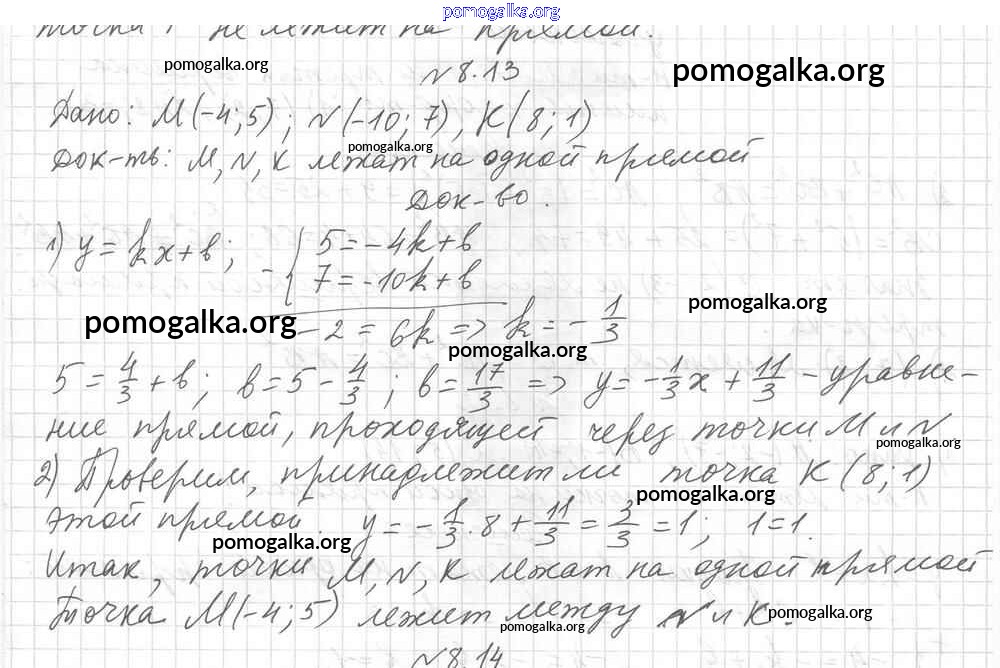 pomogalka.org
точка P не лежит на прямой.
pomogalka.org
№ 8.13
pomogalka.org
Дано: M(-4; 5); N(-10; 7), K(8; 1)
pomogalka.org
Док-ть: M, N, K лежат на одной прямой
Док-во.
1) y = kx + b; - { 5 = -4k + b
7 = -10k + b
pomogalka.org
pomogalka.org
-2 = 6k => k = -1/3
pomogalka.org
5 = 4/3 + b; b = 5 - 4/3; b = 17/3 => y = -1/3 x + 11/3 - уравне-
ние прямой, проходящей через точки M и N
pomogalka.org
2) Проверим, принадлежит ли точка K (8; 1)
pomogalka.org
этой прямой. y = -1/3 · 8 + 11/3 = 3/3 = 1; 1 = 1.
pomogalka.org
Итак, точки M, N, K лежат на одной прямой
Точка M(-4; 5) лежит между N и K.
pomogalka.org
pomogalka.org
№ 8.14